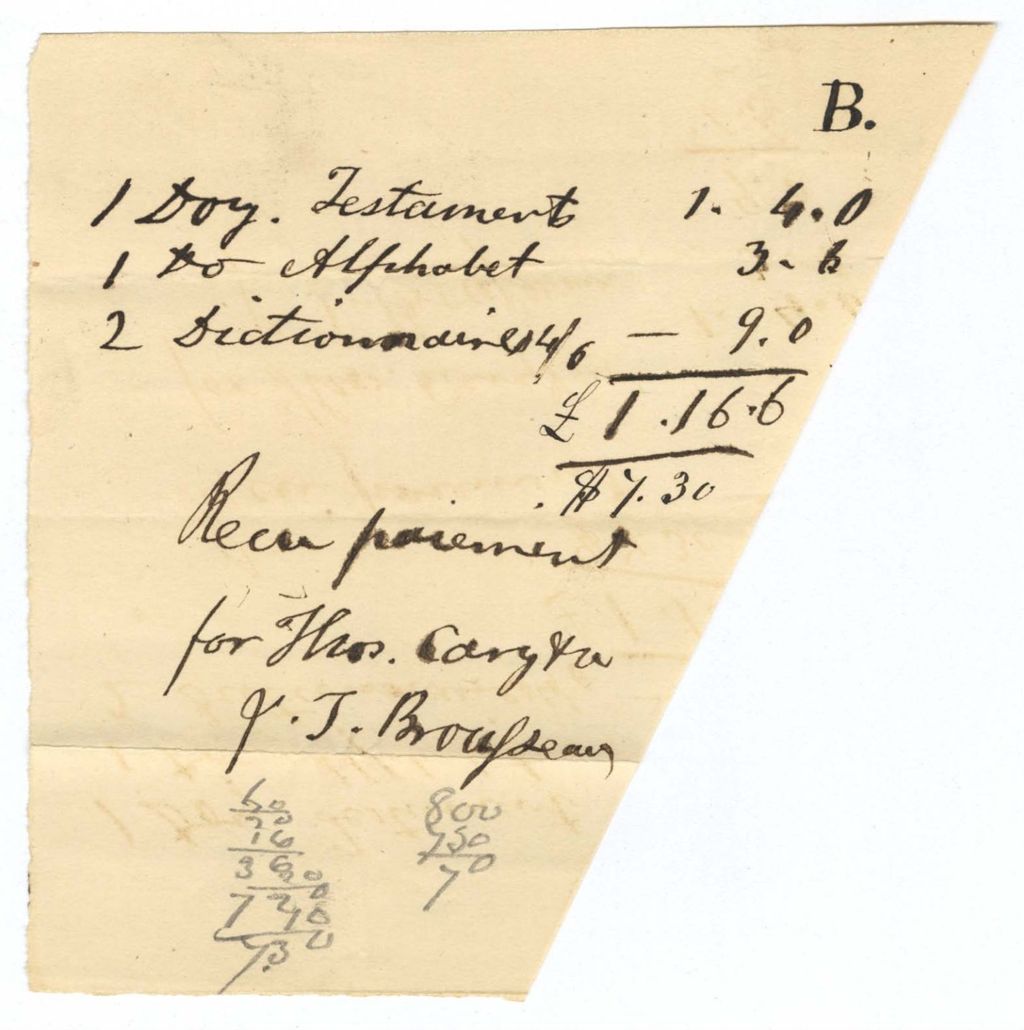 B.
1 Doz. Testaments 1. 4. 0
1 Do Alphabet 3. 6
2 Dictionnaires 4/6 — 9. 0
£ 1. 16. 6
$7. 30
Recu paiement
for Thos. Cary & Co
J. T. Brousseau
800
750
7